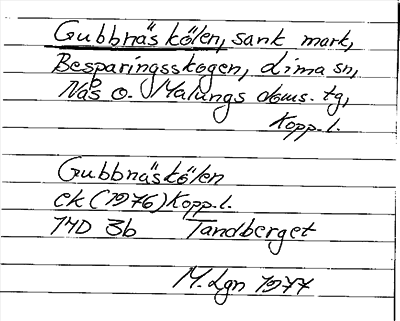 Gubbnäskölen, sank mark,
Besparingsskogen, Lima sn,
Nås o. Malungs doms. tg,
Kopp.l.
Gubbnäskölen
ek (1976) Kopp.l.
14D 3b Tandberget
M.Lgn 1977